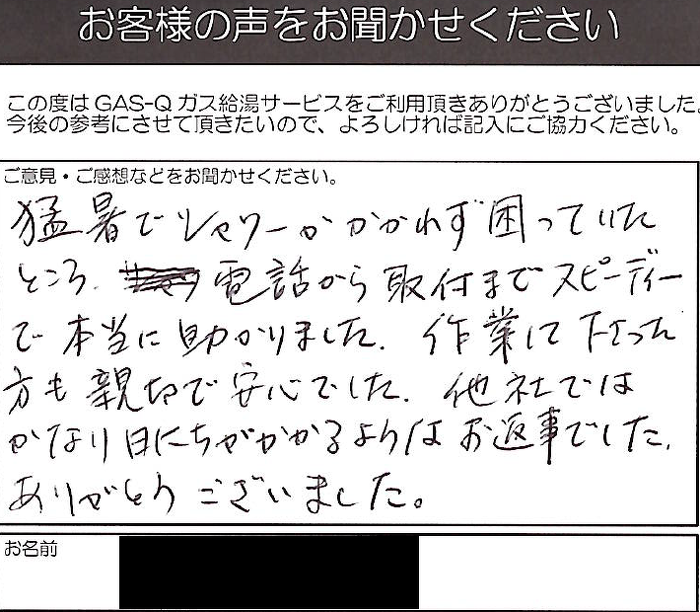 お客様の声をお聞かせください
この度はGAS-Qガス給湯サービスをご利用頂きありがとうございました。
今後の参考にさせて頂きたいので、よろしければ記入にご協力ください。
ご意見・ご感想などをお聞かせください。
猛暑でシャワーがかかれず困っていた
ところ、電話から取付までスピーディー
で本当に助かりました。作業して下さった
方も親切で安心でした。他社では
かなり日にちがかかるようなお返事でした。
ありがとうございました。
お名前